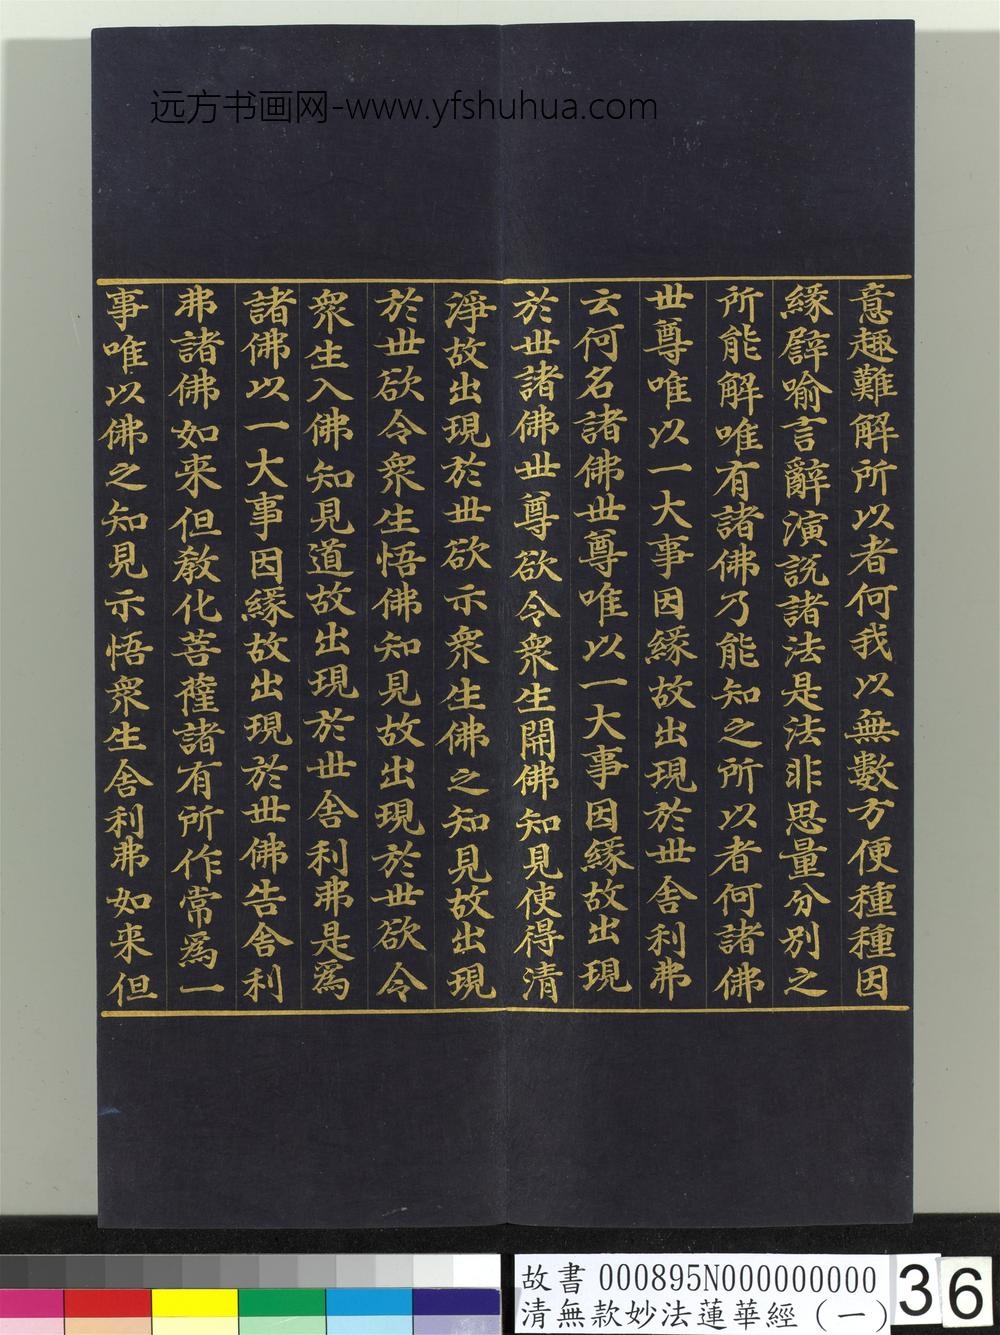 远方书画网-www.yfshuhua.com
意趣難解所以者何我以無數方便種種因
緣譬喻言辭演說諸法是法非思量分別之
所能解唯有諸佛乃能知之所以者何諸佛
世尊唯以一大事因緣故出現於世舍利弗
云何名諸佛世尊唯以一大事因緣故出現
於世諸佛世尊欲令衆生開佛知見使得清
淨故出現於世欲示衆生佛之知見故出現
於世欲令衆生悟佛知見故出現於世欲令
衆生入佛知見道故出現於世舍利弗是為
諸佛以一大事因緣故出現於世佛告舍利
弗諸佛如来但教化菩薩諸有所作常為一
事唯以佛之知見示悟衆生舍利弗如来但
故書 000895N000000000
清無款妙法蓮華經（一）
36